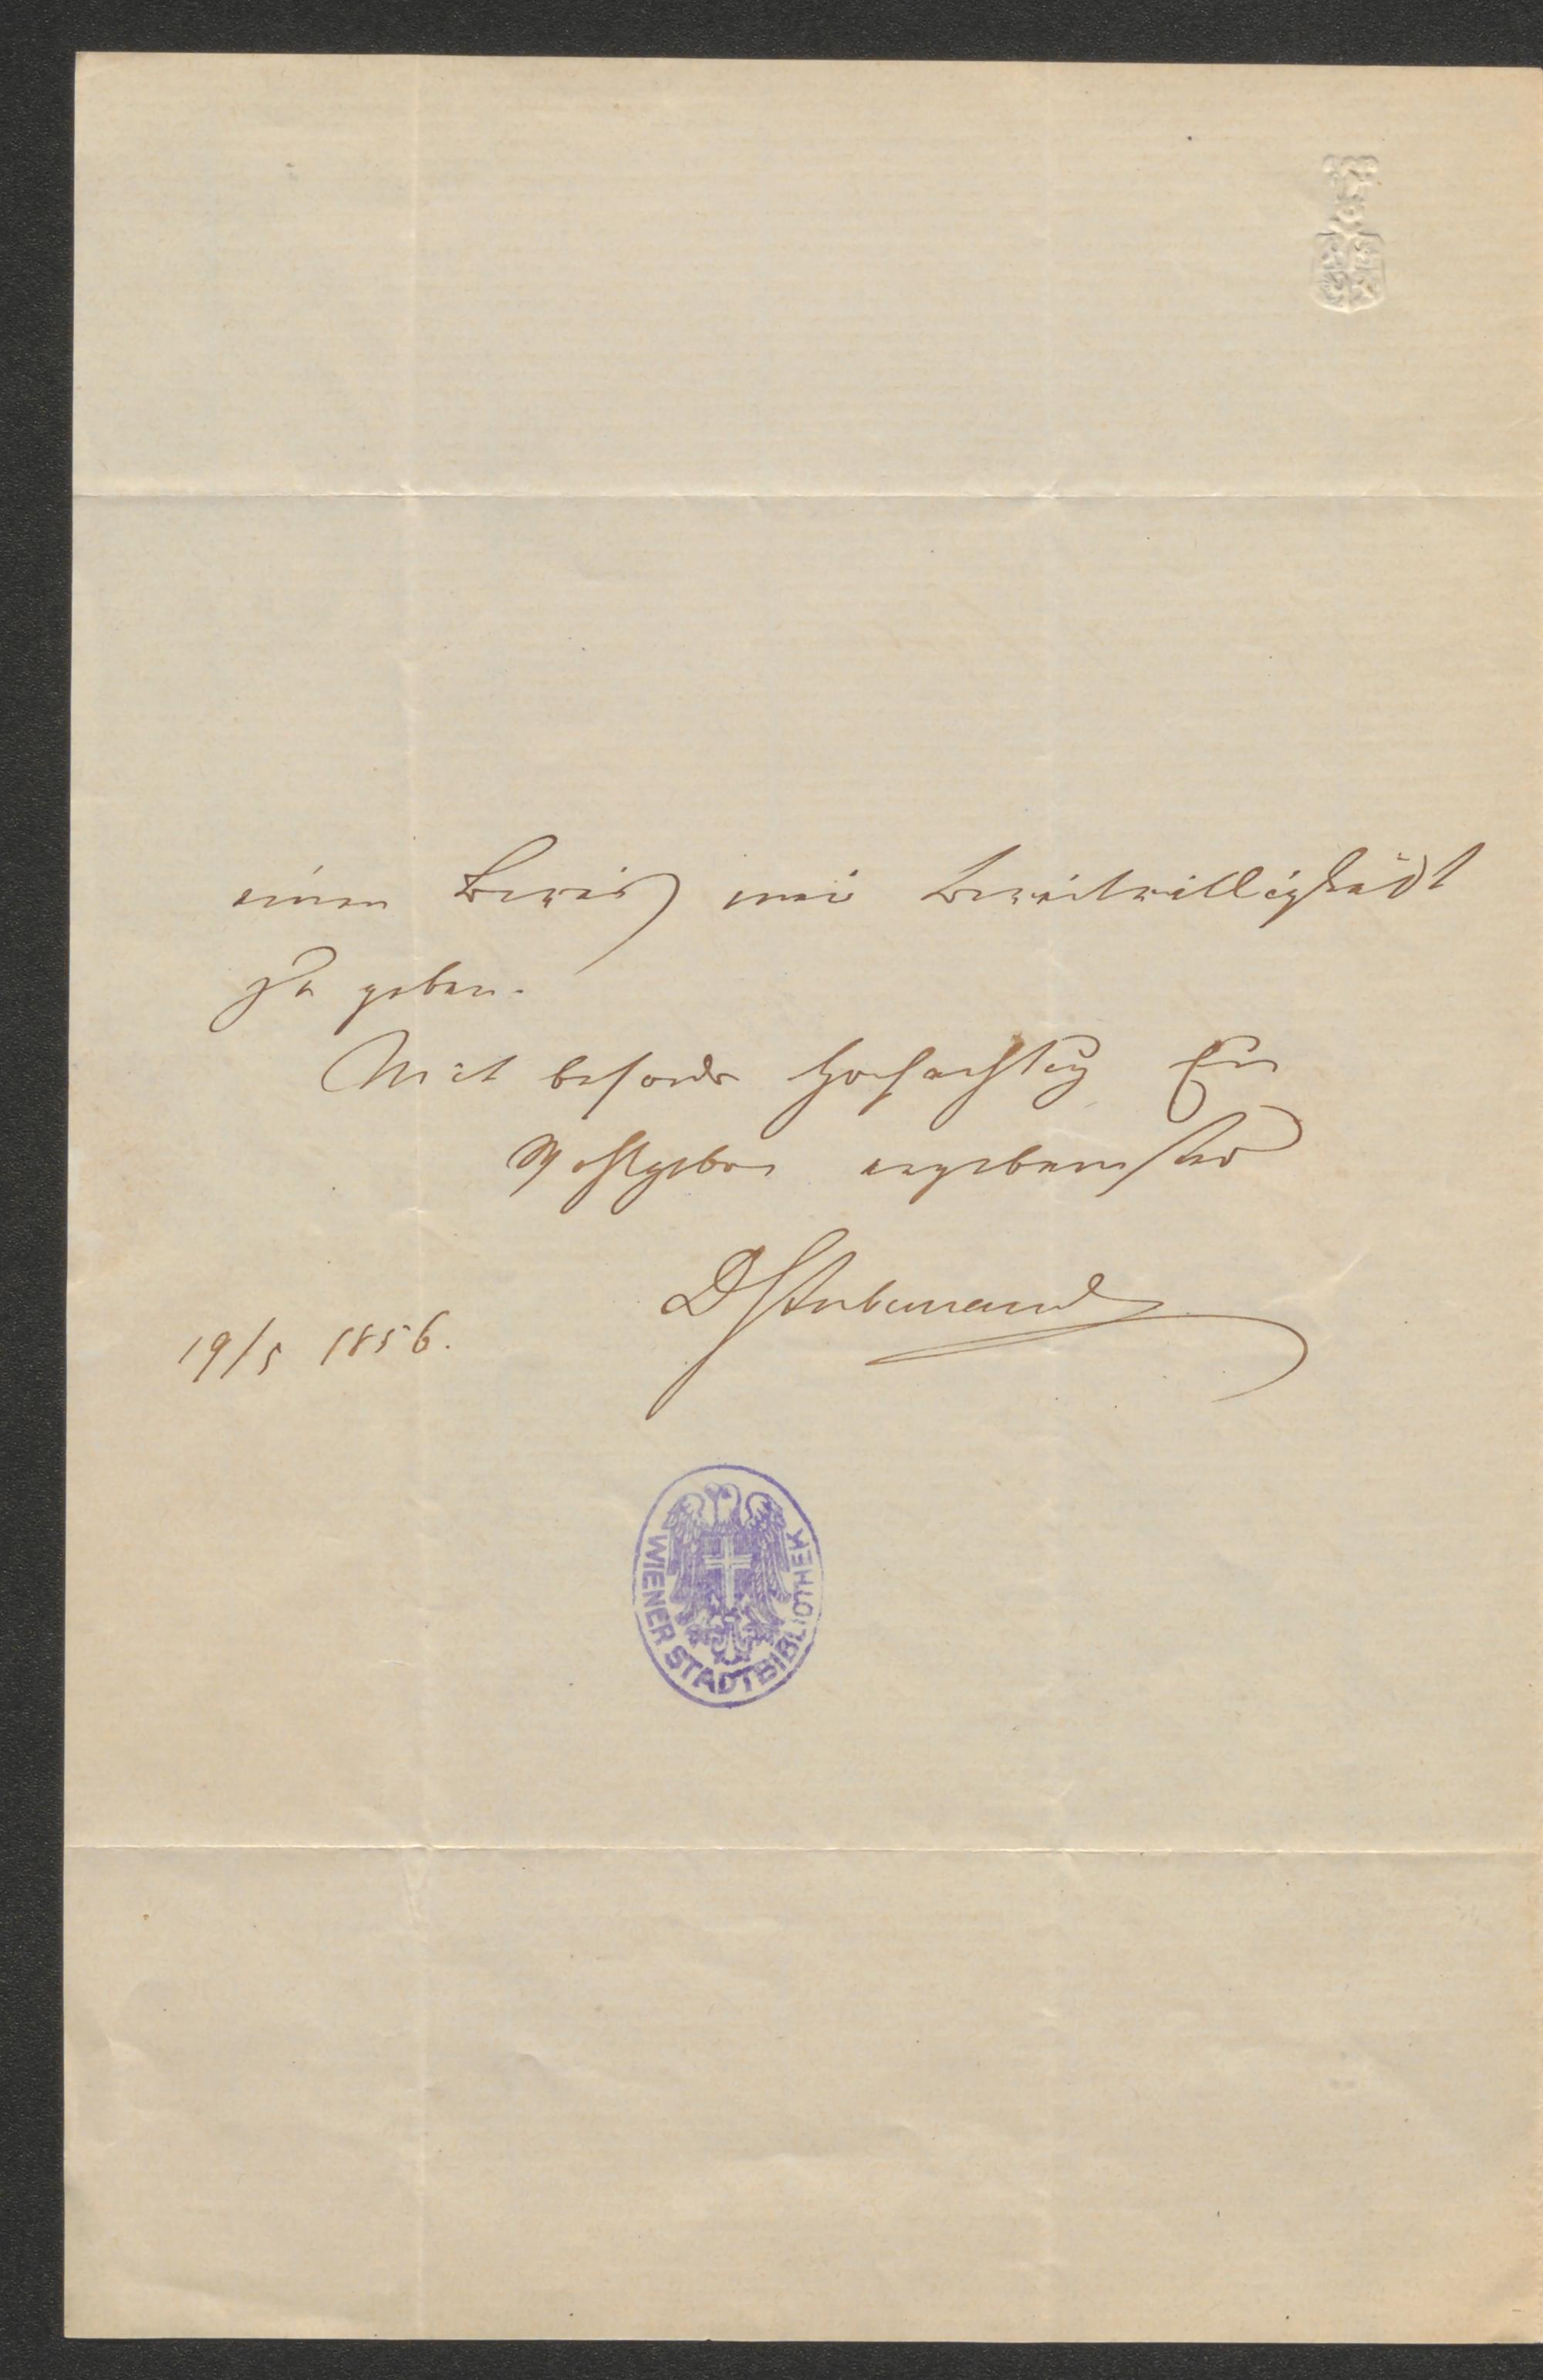 einen Beweis mei Bereitwilligkeit
zu geben.
Mit besondr Hochachtug Eur
Wohlgebor ergebenster
19/5 1856.
WIENER STADTBIBLIOTHEK